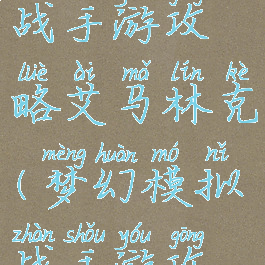 战手游攻
lüè ài mǎ lín kè
略艾马林克
mèng huàn mó nǐ
(梦幻模拟
zhàn shǒu yóu gōng
战手游攻